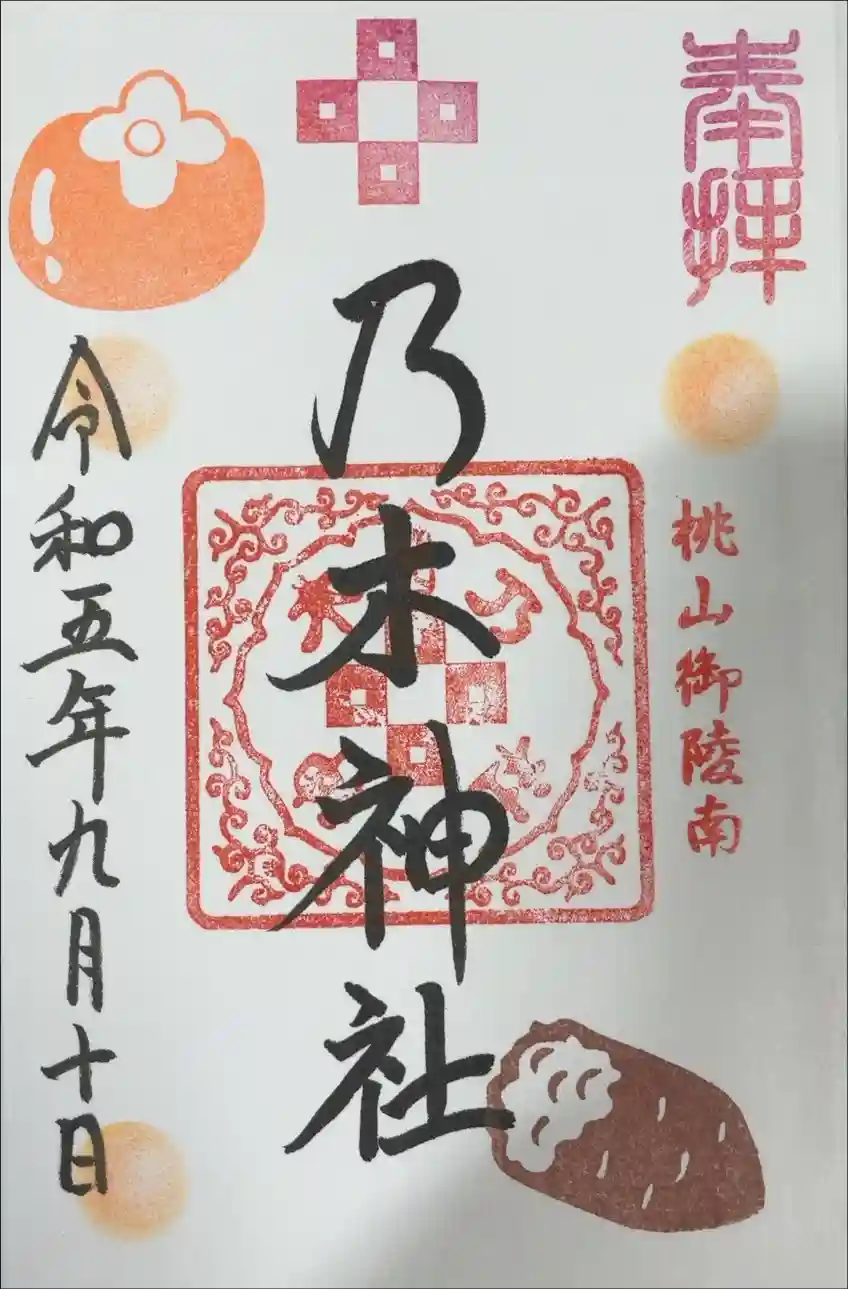 奉拝
桃山御陵南
乃木神社
令和五年九月十日